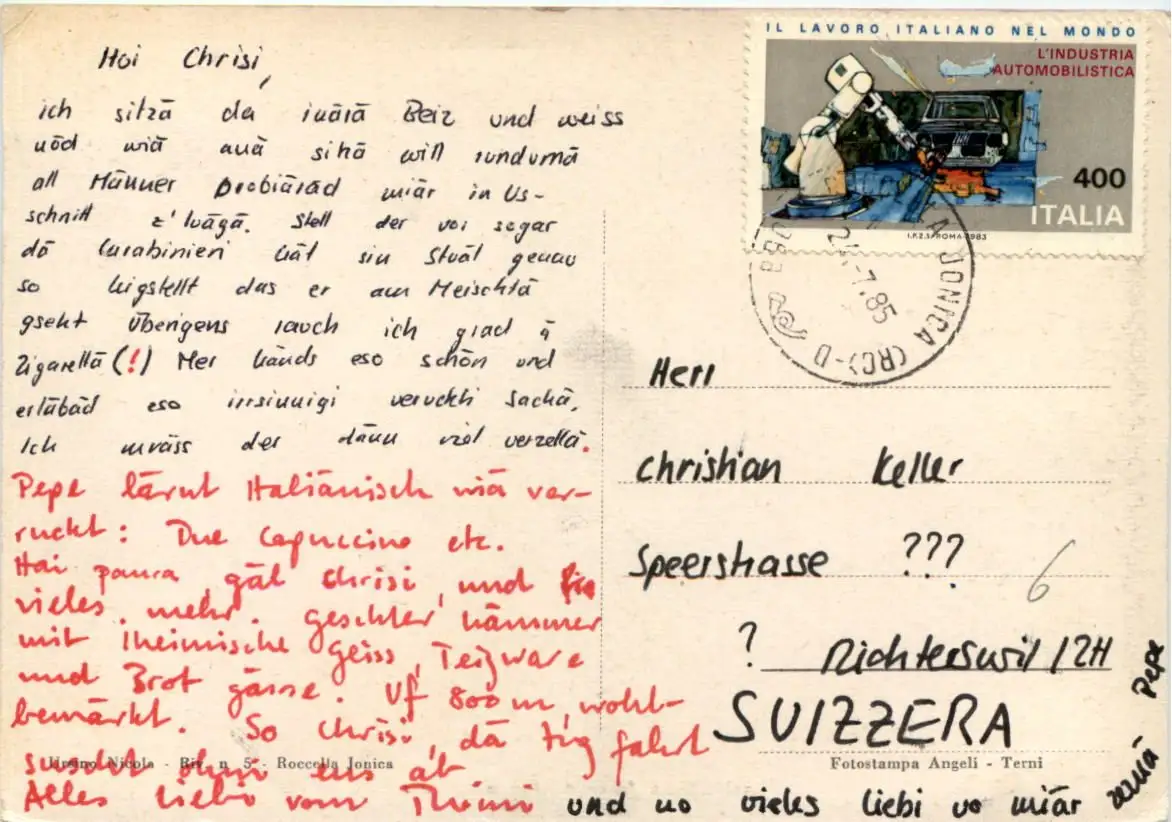 Hoi Chrisi,
ich sitzä da inärä Beiz und weiss
nöd wiä anä sihä will rundumä
all Männer probiäräd miär in Us-
schnitt z' luägä. Stell der voi sogar
dä Carabinieri hät sin Stuäl genau
so higstellt das er am Meischtä
gseht Überigens rauch ich grad ä
Zigarettä (!) Mer händs eso schön und
erläbäd eso irrsinnigi veruckti Sachä,
Ich muäss der dänn viel verzellä.
Pepe lärnt Italiänisch wiä ver-
ruckt: Due Capuccino etc.
Hai paura, gäl Chrisi, und
vieles mehr. Geschter hämmer
mit iheimische Geiss, Teigware
und Brot gässe. Uf 800 m, wohl-
bemärkt. So Chrisi, dä Zug fahrt
susch ohni eus ab.
Alles Liebi vom Thömi und no vieles liebi vo miär
äxnä Pepe
IL LAVORO ITALIANO NEL MONDO
L'INDUSTRIA
AUTOMOBILISTICA
400
ITALIA
I.P.Z.S. ROMA 1983
A JONICA (RC)-D
24.-7.85
Herr
Christian Keller
Speerstrasse ???
6
? Richterswil / ZH
SUIZZERA
Ursino Nicola - Riv. n 5 - Roccella Jonica
Fotostampa Angeli - Terni